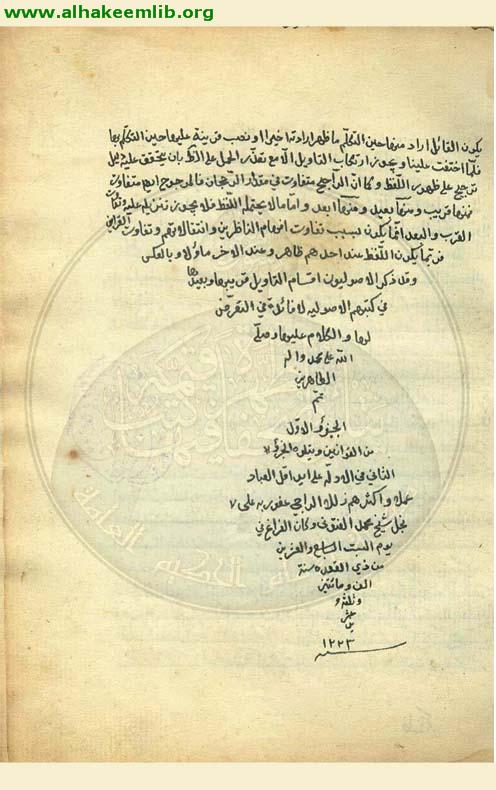 www.alhakeemlib.org
يكون القائل اراد منها حين التكلم ما ظهر ارادته اخيرا و نصب قرينة عليها حين التكلم بها
فلما اختفت علينا و يجوز ارتكاب التاويل الا مع تعذر الحمل على الظاهر بان يتحقق عليه دليل
ترجيح على ظهور اللفظ و كما ان الراجح متفاوت في مقدار الرجحان فالمرجوح ايضا متفاوت
فمنها قريب و منها بعيد و منها ابعد و اما ما لا يحتمله اللفظ فلا يجوز تنزيله عليه و تفاوت
القرب و البعد انما يكون بسبب تفاوت افهام الناظرين و انتقالاتهم و تفاوت القرائن
فربما يكون اللفظ عند احدهم ظاهر و عند الاخر ماولا و بالعكس
و قد ذكر الاصوليون اقسام التاويل قريبها و بعيدها
في كتبهم الاصوليه لا فائدة في التعرض
لها و الكلام عليها و صلى
الله على محمد و اله
الطاهرين
تم
الجزؤ الاول
من القوانين و يتلوه الجزؤ
الثاني في الادلة على يد اقل العباد
عملا و اكثرهم زللا الراجي عفو ربه على
نجل شيخ محمد و كان الفراغ في
يوم السبت السابع و العشرين
من ذي القعدة سنة
الف و مائتين
و ثلثة و
عشرين
١٢٢٣